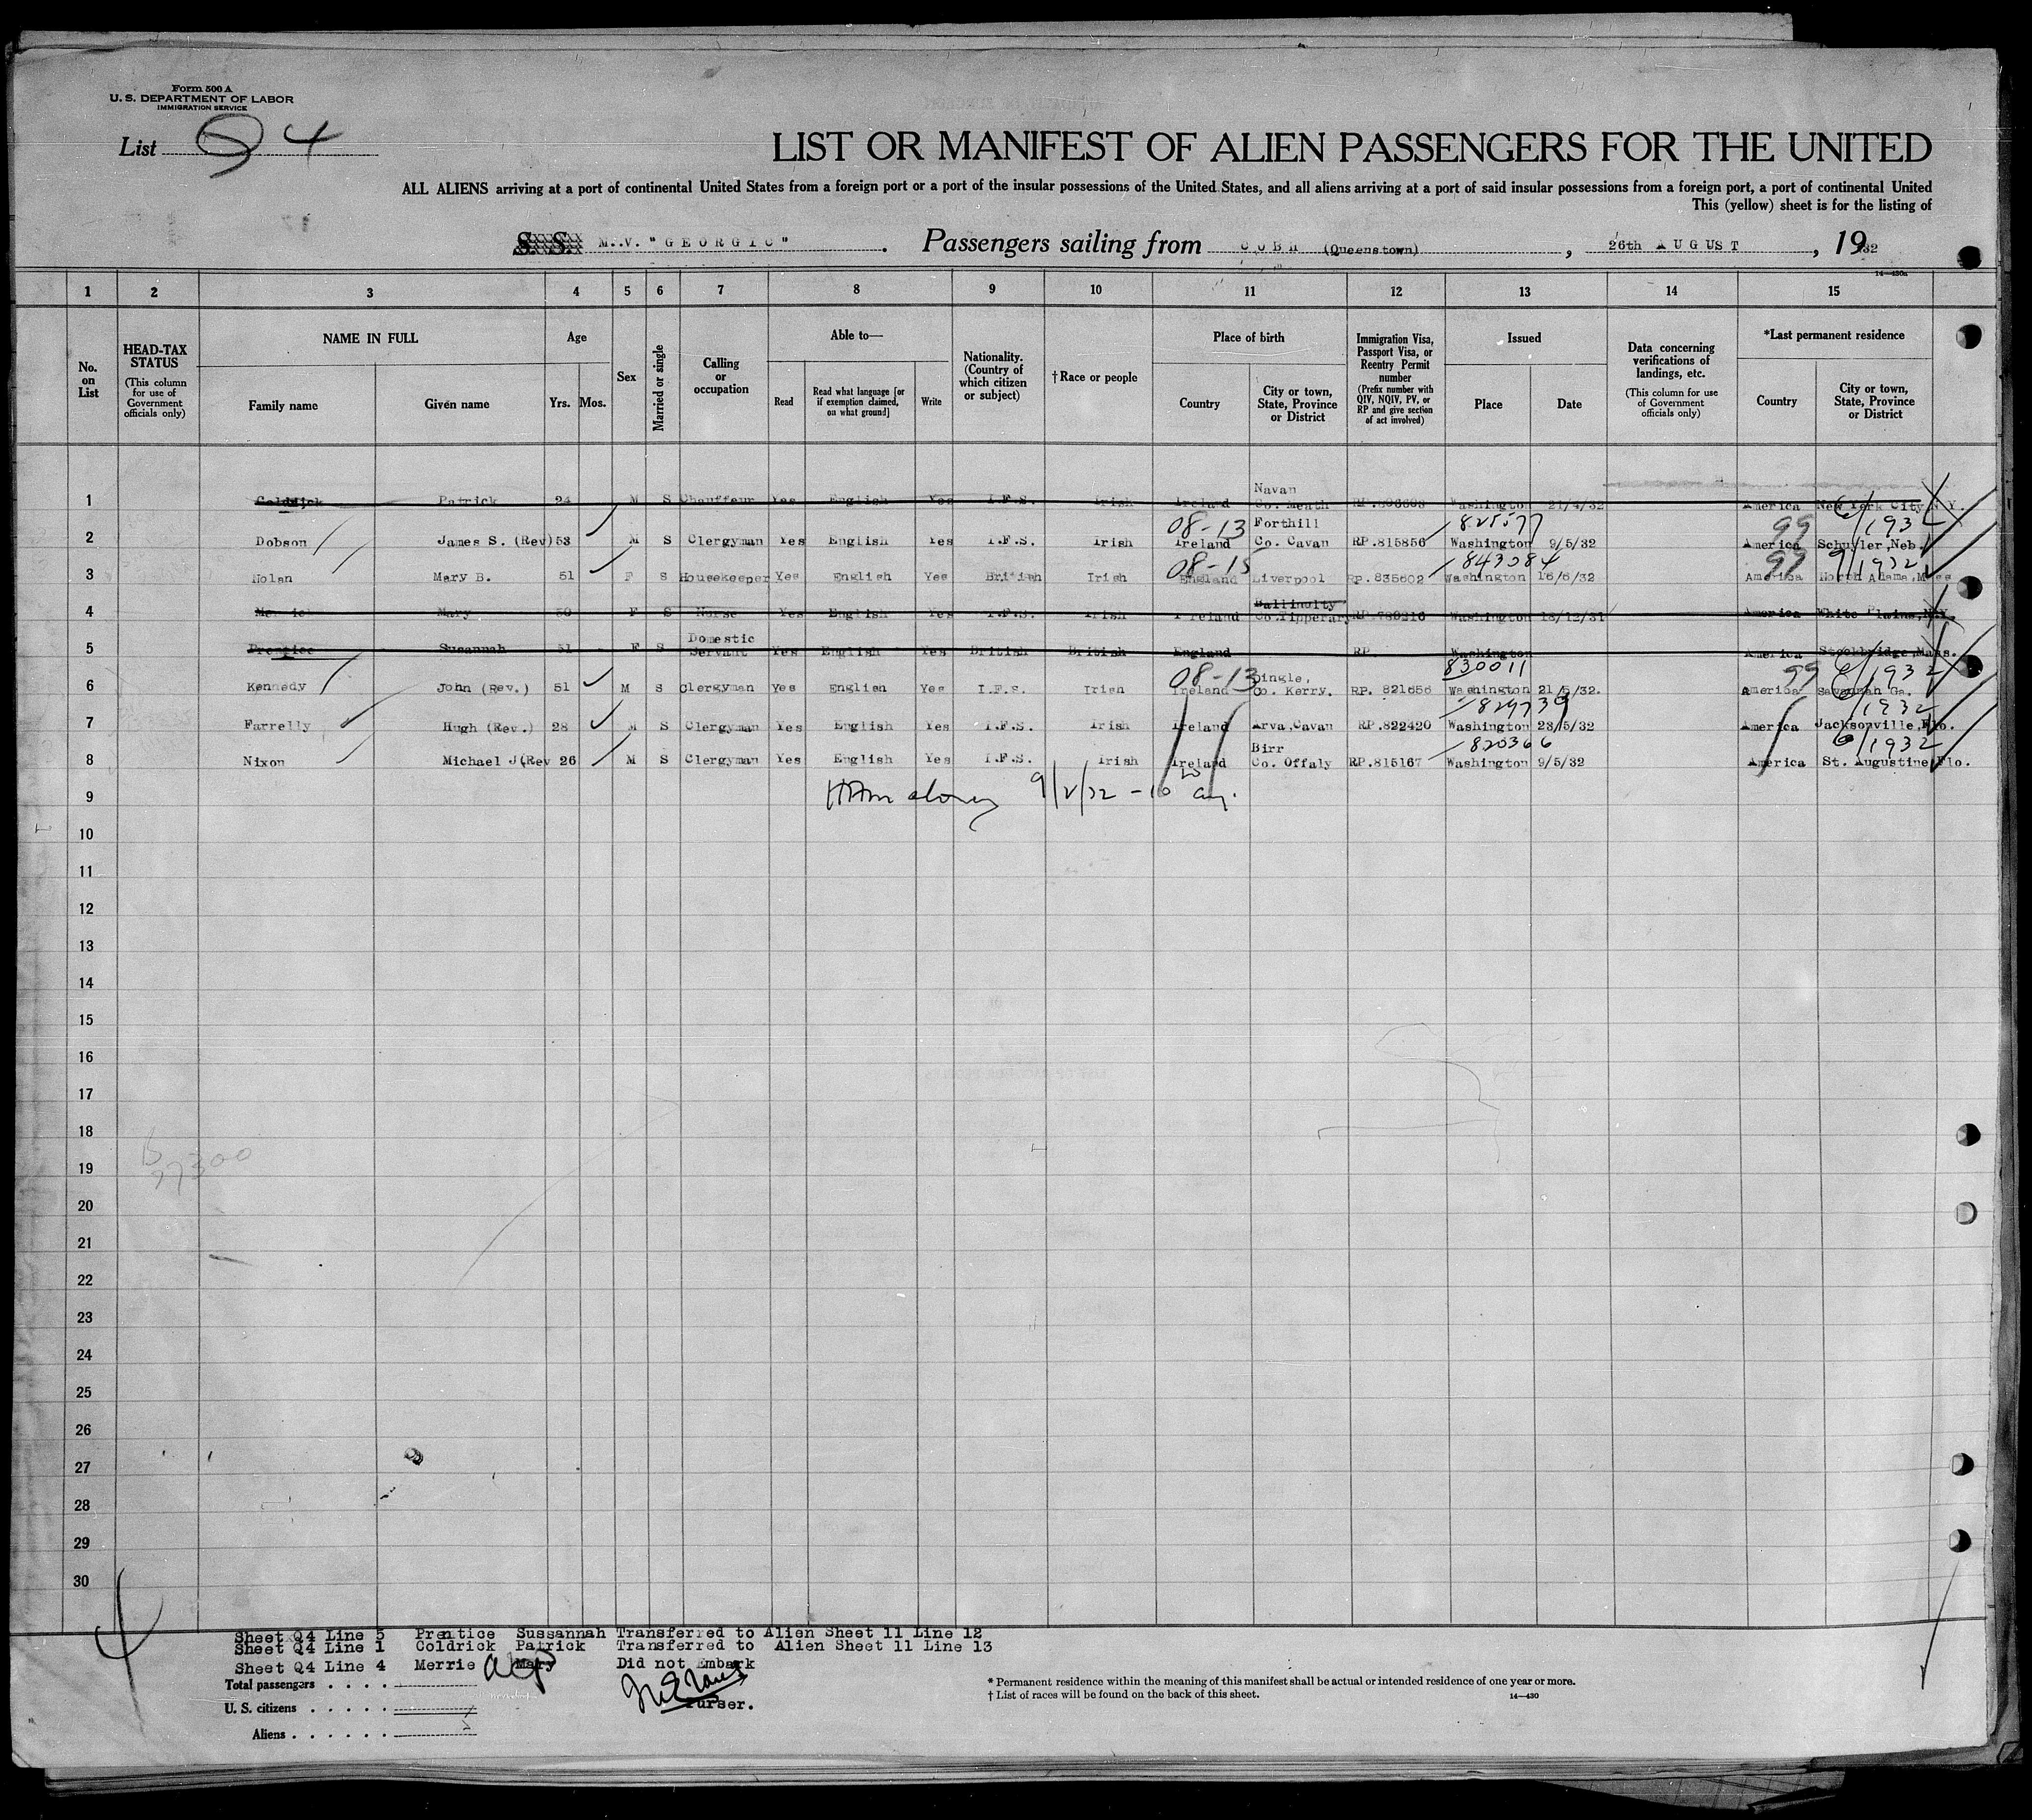 Form 500 A
U. S. DEPARTMENT OF LABOR
IMMIGRATION SERVICE
List Q 4
LIST OR MANIFEST OF ALIEN PASSENGERS FOR THE UNITED
ALL ALIENS arriving at a port of continental United States from a foreign port or a port of the insular possessions of the United States, and all aliens arriving at a port of said insular possessions from a foreign port, a port of continental United
This (yellow) sheet is for the listing of
S. S. M.V. "GEORGIC" . Passengers sailing from COBH (Queenstown) , 26th AUGUST , 1932
14—430a
1 2 3 4 5 6 7 8 9 10 11 12 13 14 15
No. on List
HEAD-TAX STATUS
(This column for use of Government officials only)
NAME IN FULL
Family name
Given name
Age
Yrs. Mos.
Sex
Married or single
Calling or occupation
Able to—
Read
Read what language [or if exemption claimed, on what ground]
Write
Nationality. (Country of which citizen or subject)
†Race or people
Place of birth
Country
City or town, State, Province or District
Immigration Visa, Passport Visa, or Reentry Permit number
(Prefix number with QIV, NQIV, PV, or RP and give section of act involved)
Issued
Place
Date
Data concerning verifications of landings, etc.
(This column for use of Government officials only)
*Last permanent residence
Country
City or town, State, Province or District
Navan
1 Coldrick Patrick 24 M S Chauffeur Yes English Yes I.F.S. Irish Ireland Co. Meath Washington 21/4/32 America New York City, N.Y.
08-13 Forthill 825577 99 6/1932
2 Dobson James S. (Rev) 53 M S Clergyman Yes English Yes I.F.S. Irish Ireland Co. Cavan RP.815856 Washington 9/5/32 America Schuyler, Neb.
08-15 847084 99 9/1932
3 Nolan Mary B. 51 F S Housekeeper Yes English Yes British Irish England Liverpool RP.835602 Washington 16/6/32 America North Adams, Mass
4 Mary 50 F S Nurse Yes English Yes I.F.S. Irish Ireland Co. Tipperary Washington 18/12/31 America White Plains, N.Y.
Domestic
5 Prentice Susannah 51 F S Servant Yes English Yes British British England RP. Washington America Stockbridge, Mass.
08-13 Dingle, 830011 99 6/1932
6 Kennedy John (Rev.) 51 M S Clergyman Yes English Yes I.F.S. Irish Ireland Co. Kerry. RP. 821656 Washington 21/5/32. America Savannah Ga.
829739 /1932
7 Farrelly Hugh (Rev.) 28 M S Clergyman Yes English Yes I.F.S. Irish Ireland Arva, Cavan RP.822420 Washington 23/5/32 America Jacksonville, Flo.
Birr 820366 6/1932
8 Nixon Michael J(Rev 26 M S Clergyman Yes English Yes I.F.S. Irish Ireland Co. Offaly RP.815167 Washington 9/5/32 America St. Augustine Flo.
9
10
11
12
13
14
15
16
17
18
19
20
21
22
23
24
25
26
27
28
29
30
Sheet Q4 Line 5 Prentice Sussannah Transferred to Alien Sheet 11 Line 12
Sheet Q4 Line 1 Coldrick Patrick Transferred to Alien Sheet 11 Line 13
Sheet Q4 Line 4 Merrie Mary Did not Embark
Total passengers . . . .
U. S. citizens . . . . .
Aliens . . . . . .
Purser.
* Permanent residence within the meaning of this manifest shall be actual or intended residence of one year or more.
† List of races will be found on the back of this sheet. 14—430